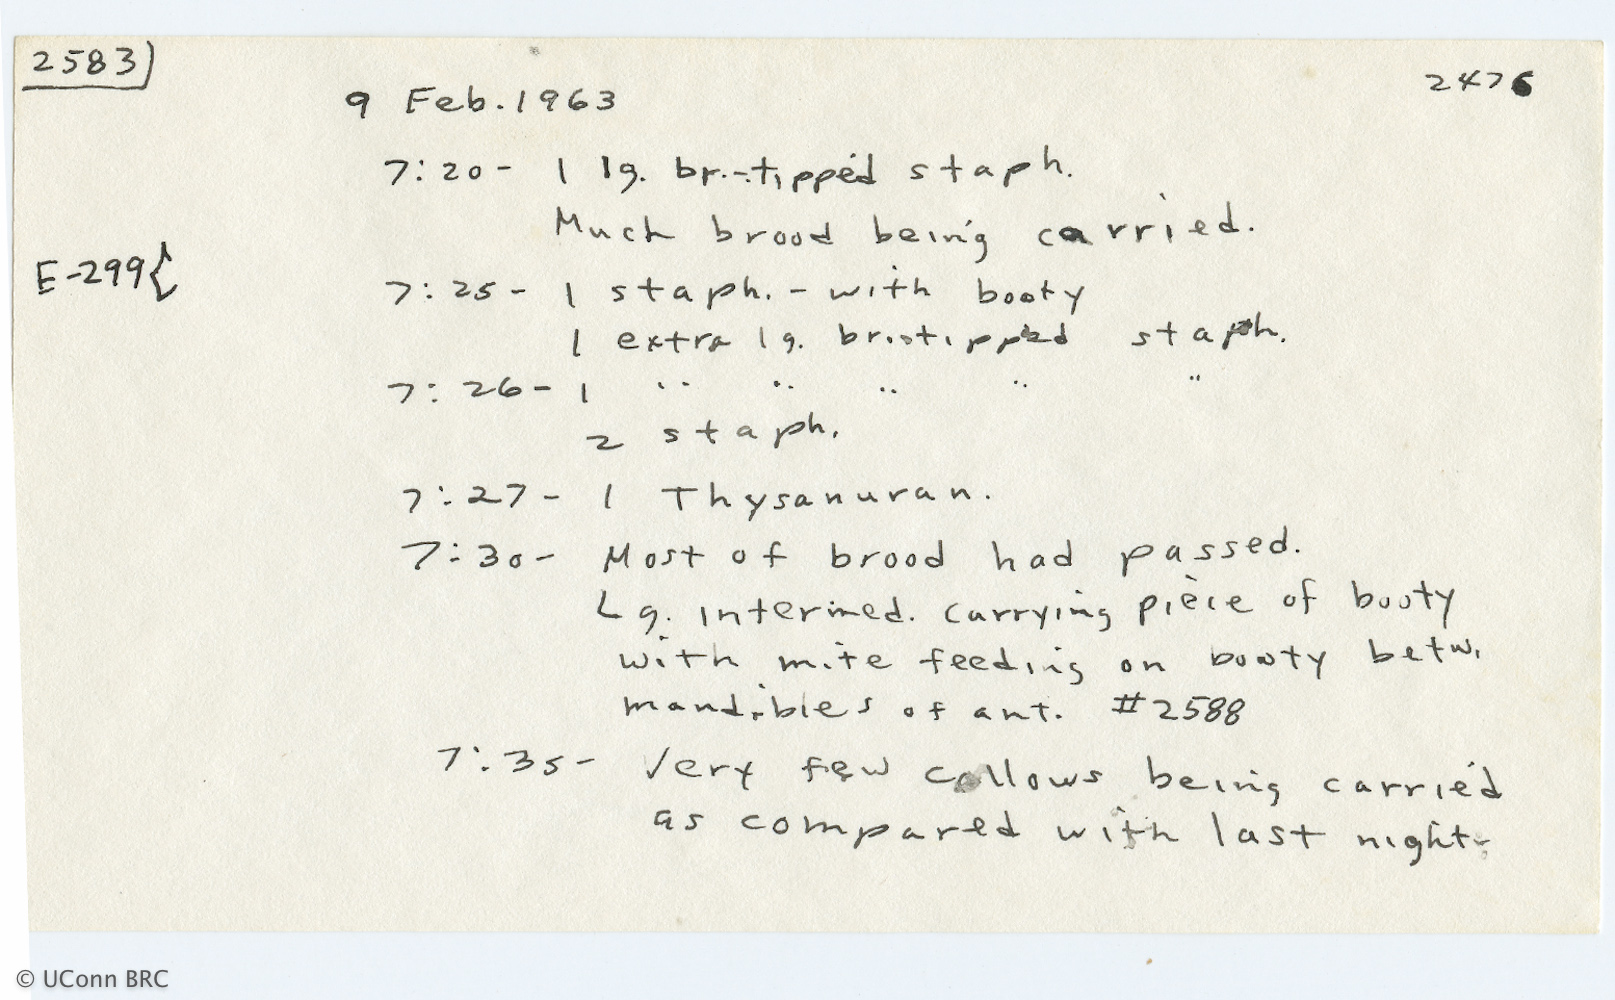 2583)
2476
9 Feb. 1963
7:20- 1 lg. br.-tipped staph.
Much brood being carried.
E-299{
7:25- 1 staph. - with booty
1 extra lg. br.-tipped staph.
7:26- 1 " " " " "
2 staph.
7:27- 1 Thysanuran.
7:30- Most of brood had passed.
Lg. intermed. carrying piece of booty
with mite feeding on booty betw.
mandibles of ant. #2588
7:35- Very few callows being carried
as compared with last night.
© UConn BRC